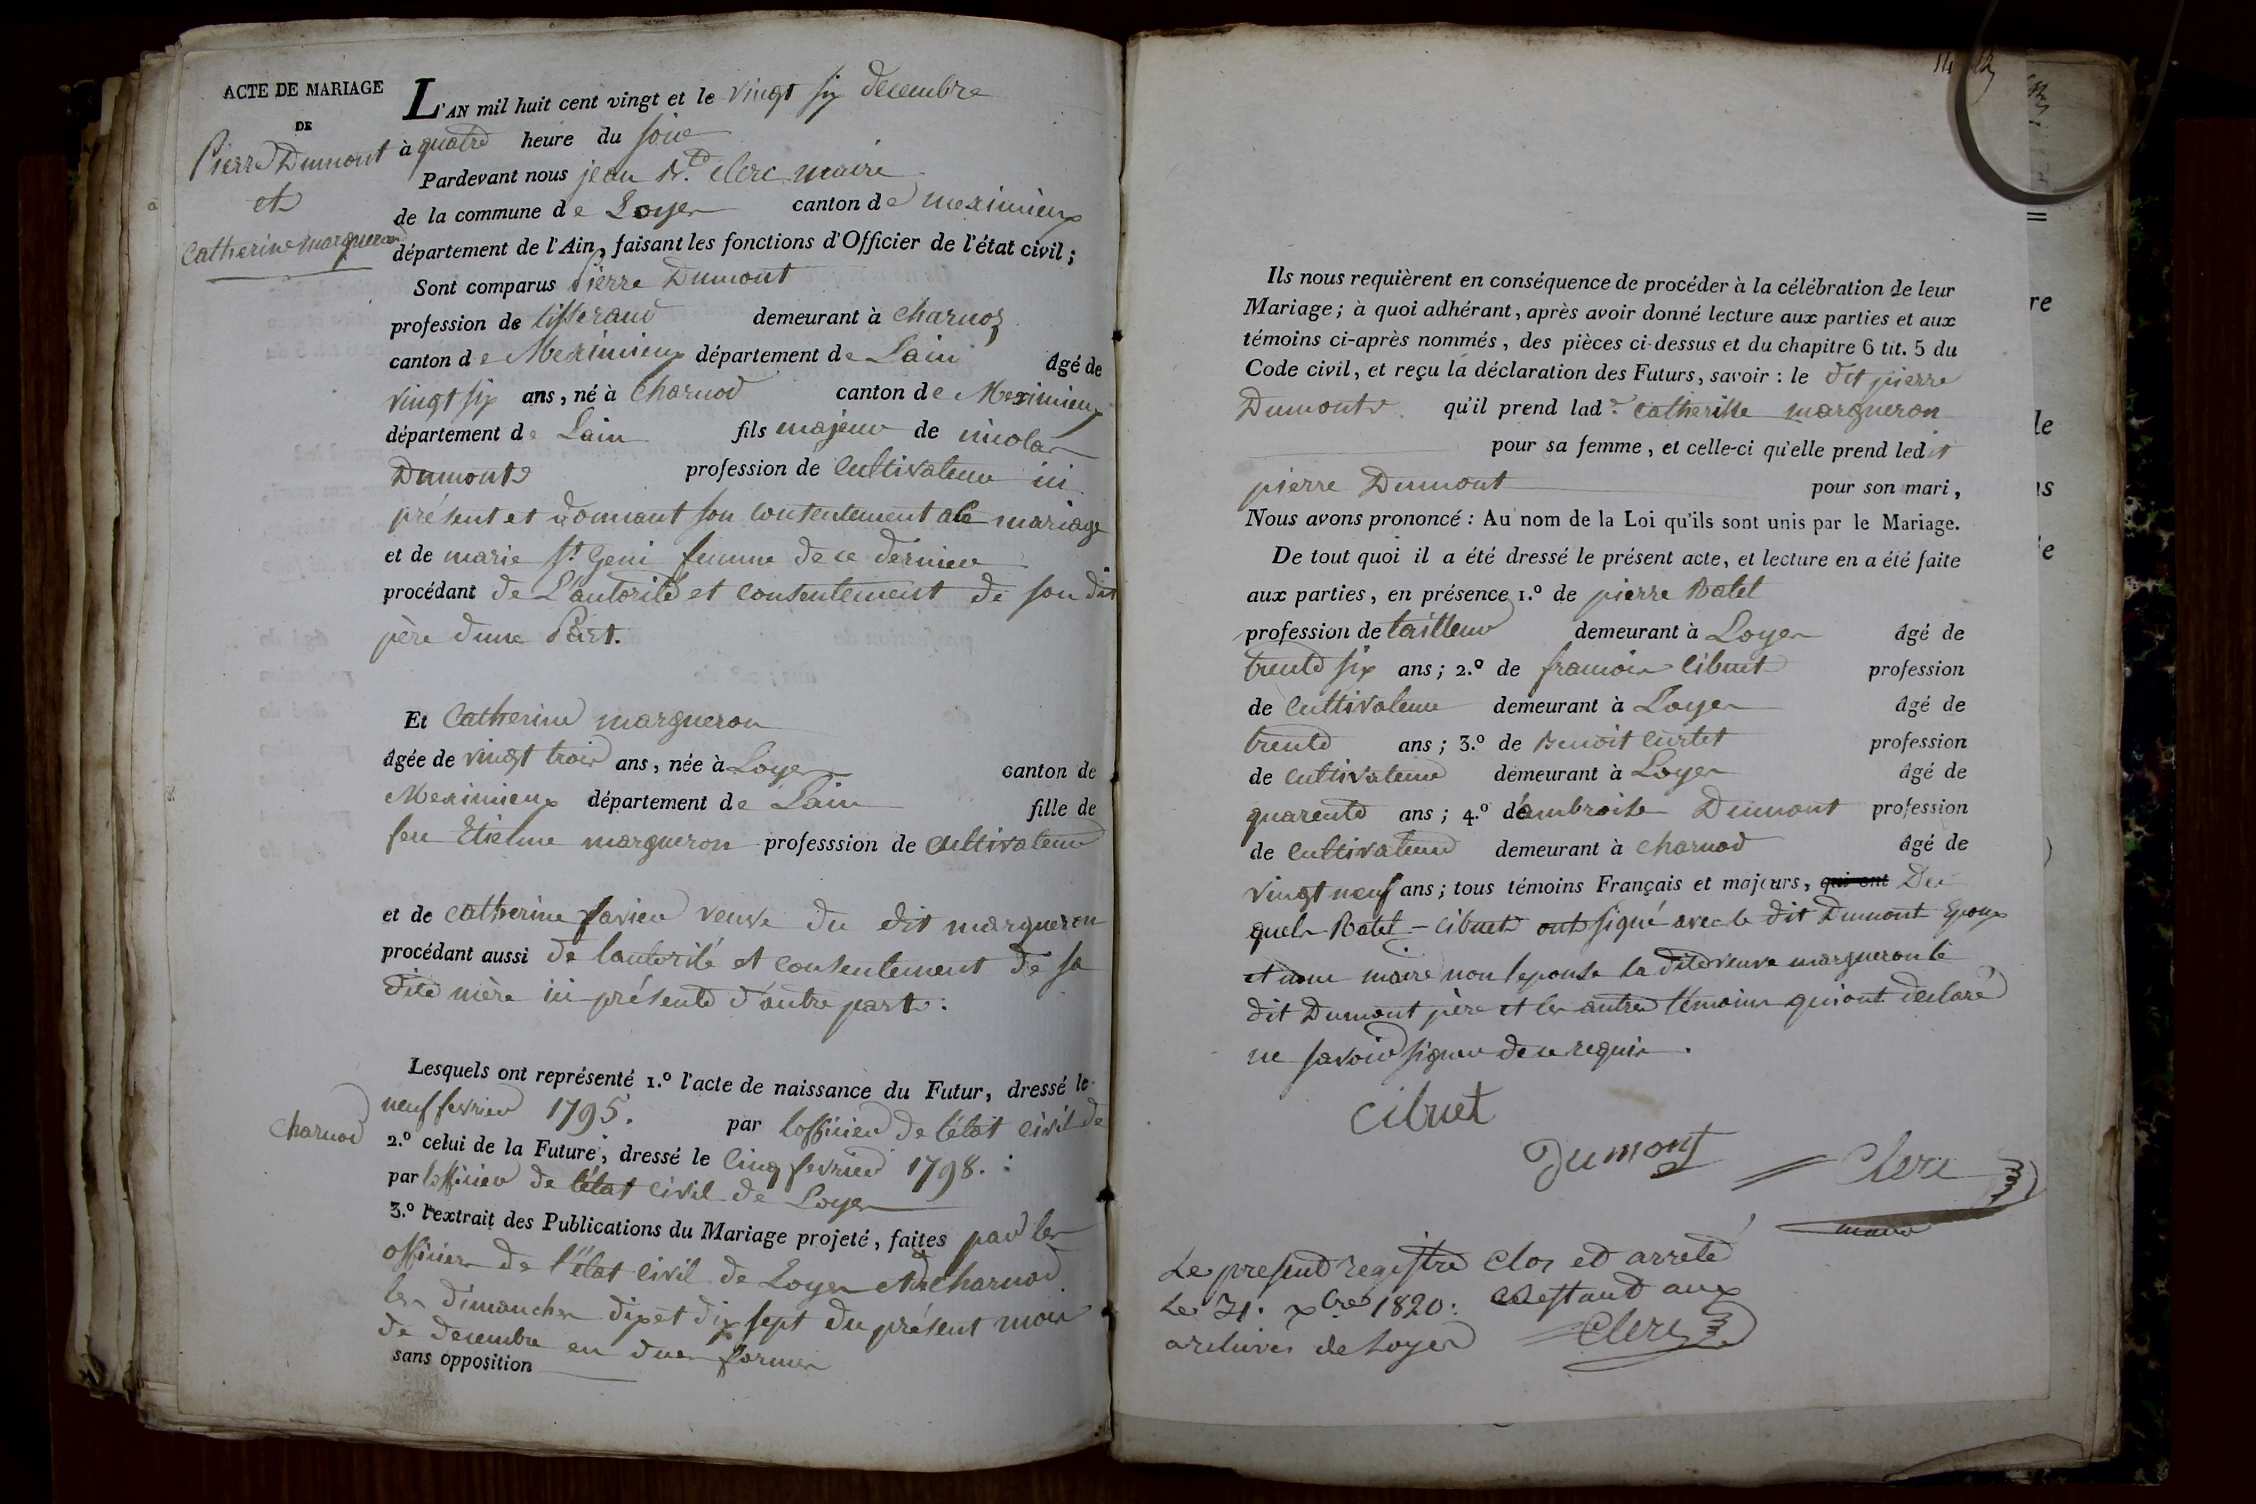 ACTE DE MARIAGE
DE
Pierre Dumont
et
Catherine margueron
L'AN mil huit cent vingt et le vingt six decembre
à quatre heure du soir
Pardevant nous jean Bd. Clerc maire
de la commune de Loyes canton de meximieux
département de l'Ain, faisant les fonctions d'Officier de l'état civil;
Sont comparus pierre Dumont
profession de tisserand demeurant à Charnoz
canton de Meximieux département de Lain âgé de
vingt six ans, né à Charnod canton de Meximieux
département de Lain fils majeur de nicolas
Dumont profession de Cultivateur ici
présent et donnant son consentement a ce mariage
et de marie St. Geni femme de ce dernier
procédant de L'autorité et consentement de son dit
père d'une Part.
Et Catherine margueron
âgée de vingt trois ans, née à Loyes canton de
Meximieux département de Lain fille de
feu Etienne margueron professsion de Cultivateur
et de Catherine favier veuve du dit margueron
procédant aussi de lautorité et consentement de sa
dite mère ici présente d'autre part.
Lesquels ont représenté 1.º l'acte de naissance du Futur, dressé le
neuf fevrier 1795. par lofficier de l'état civil de
Charnod
2.º celui de la Future, dressé le Cinq fevrier 1798. :
par lofficier de l'état civil de Loyes
3.º l'extrait des Publications du Mariage projeté, faites par les
officiers de l'état civil de Loyes et de Charnod
les dimanches dix et dix sept du présent mois
de decembre en dues formes
sans opposition
Ils nous requièrent en conséquence de procéder à la célébration de leur
Mariage; à quoi adhérant, après avoir donné lecture aux parties et aux
témoins ci-après nommés, des pièces ci-dessus et du chapitre 6 tit. 5 du
Code civil, et reçu la déclaration des Futurs, savoir: le dit pierre
Dumont qu'il prend lade. Catherine margueron
pour sa femme, et celle-ci qu'elle prend ledit
pierre Dumont pour son mari,
Nous avons prononcé: Au nom de la Loi qu'ils sont unis par le Mariage.
De tout quoi il a été dressé le présent acte, et lecture en a été faite
aux parties, en présence 1.º de pierre Batet
profession de tailleur demeurant à Loyes âgé de
trente six ans; 2.º de francois Cibuet profession
de Cultivateur demeurant à Loyes âgé de
trente ans; 3.º de Benoit Curtet profession
de Cultivateur demeurant à Loyes âgé de
quarente ans; 4.º d'ambroise Dumont profession
de Cultivateur demeurant à Charnod âgé de
vingt neuf ans; tous témoins Français et majeurs, qui ont Des
quels Batet - Cibuet ont signé avec le dit Dumont Epoux
et nous maire non l'epouse la dite veuve margueron le
dit Dumont père et les autres témoins qui ont declaré
ne savoir signer de ce requis.
Cibuet
Dumont
Clerc
maire
Le present registre Clos et arreté
Le 31. xbre 1820. Restant aux
archives de Loyes Clerc